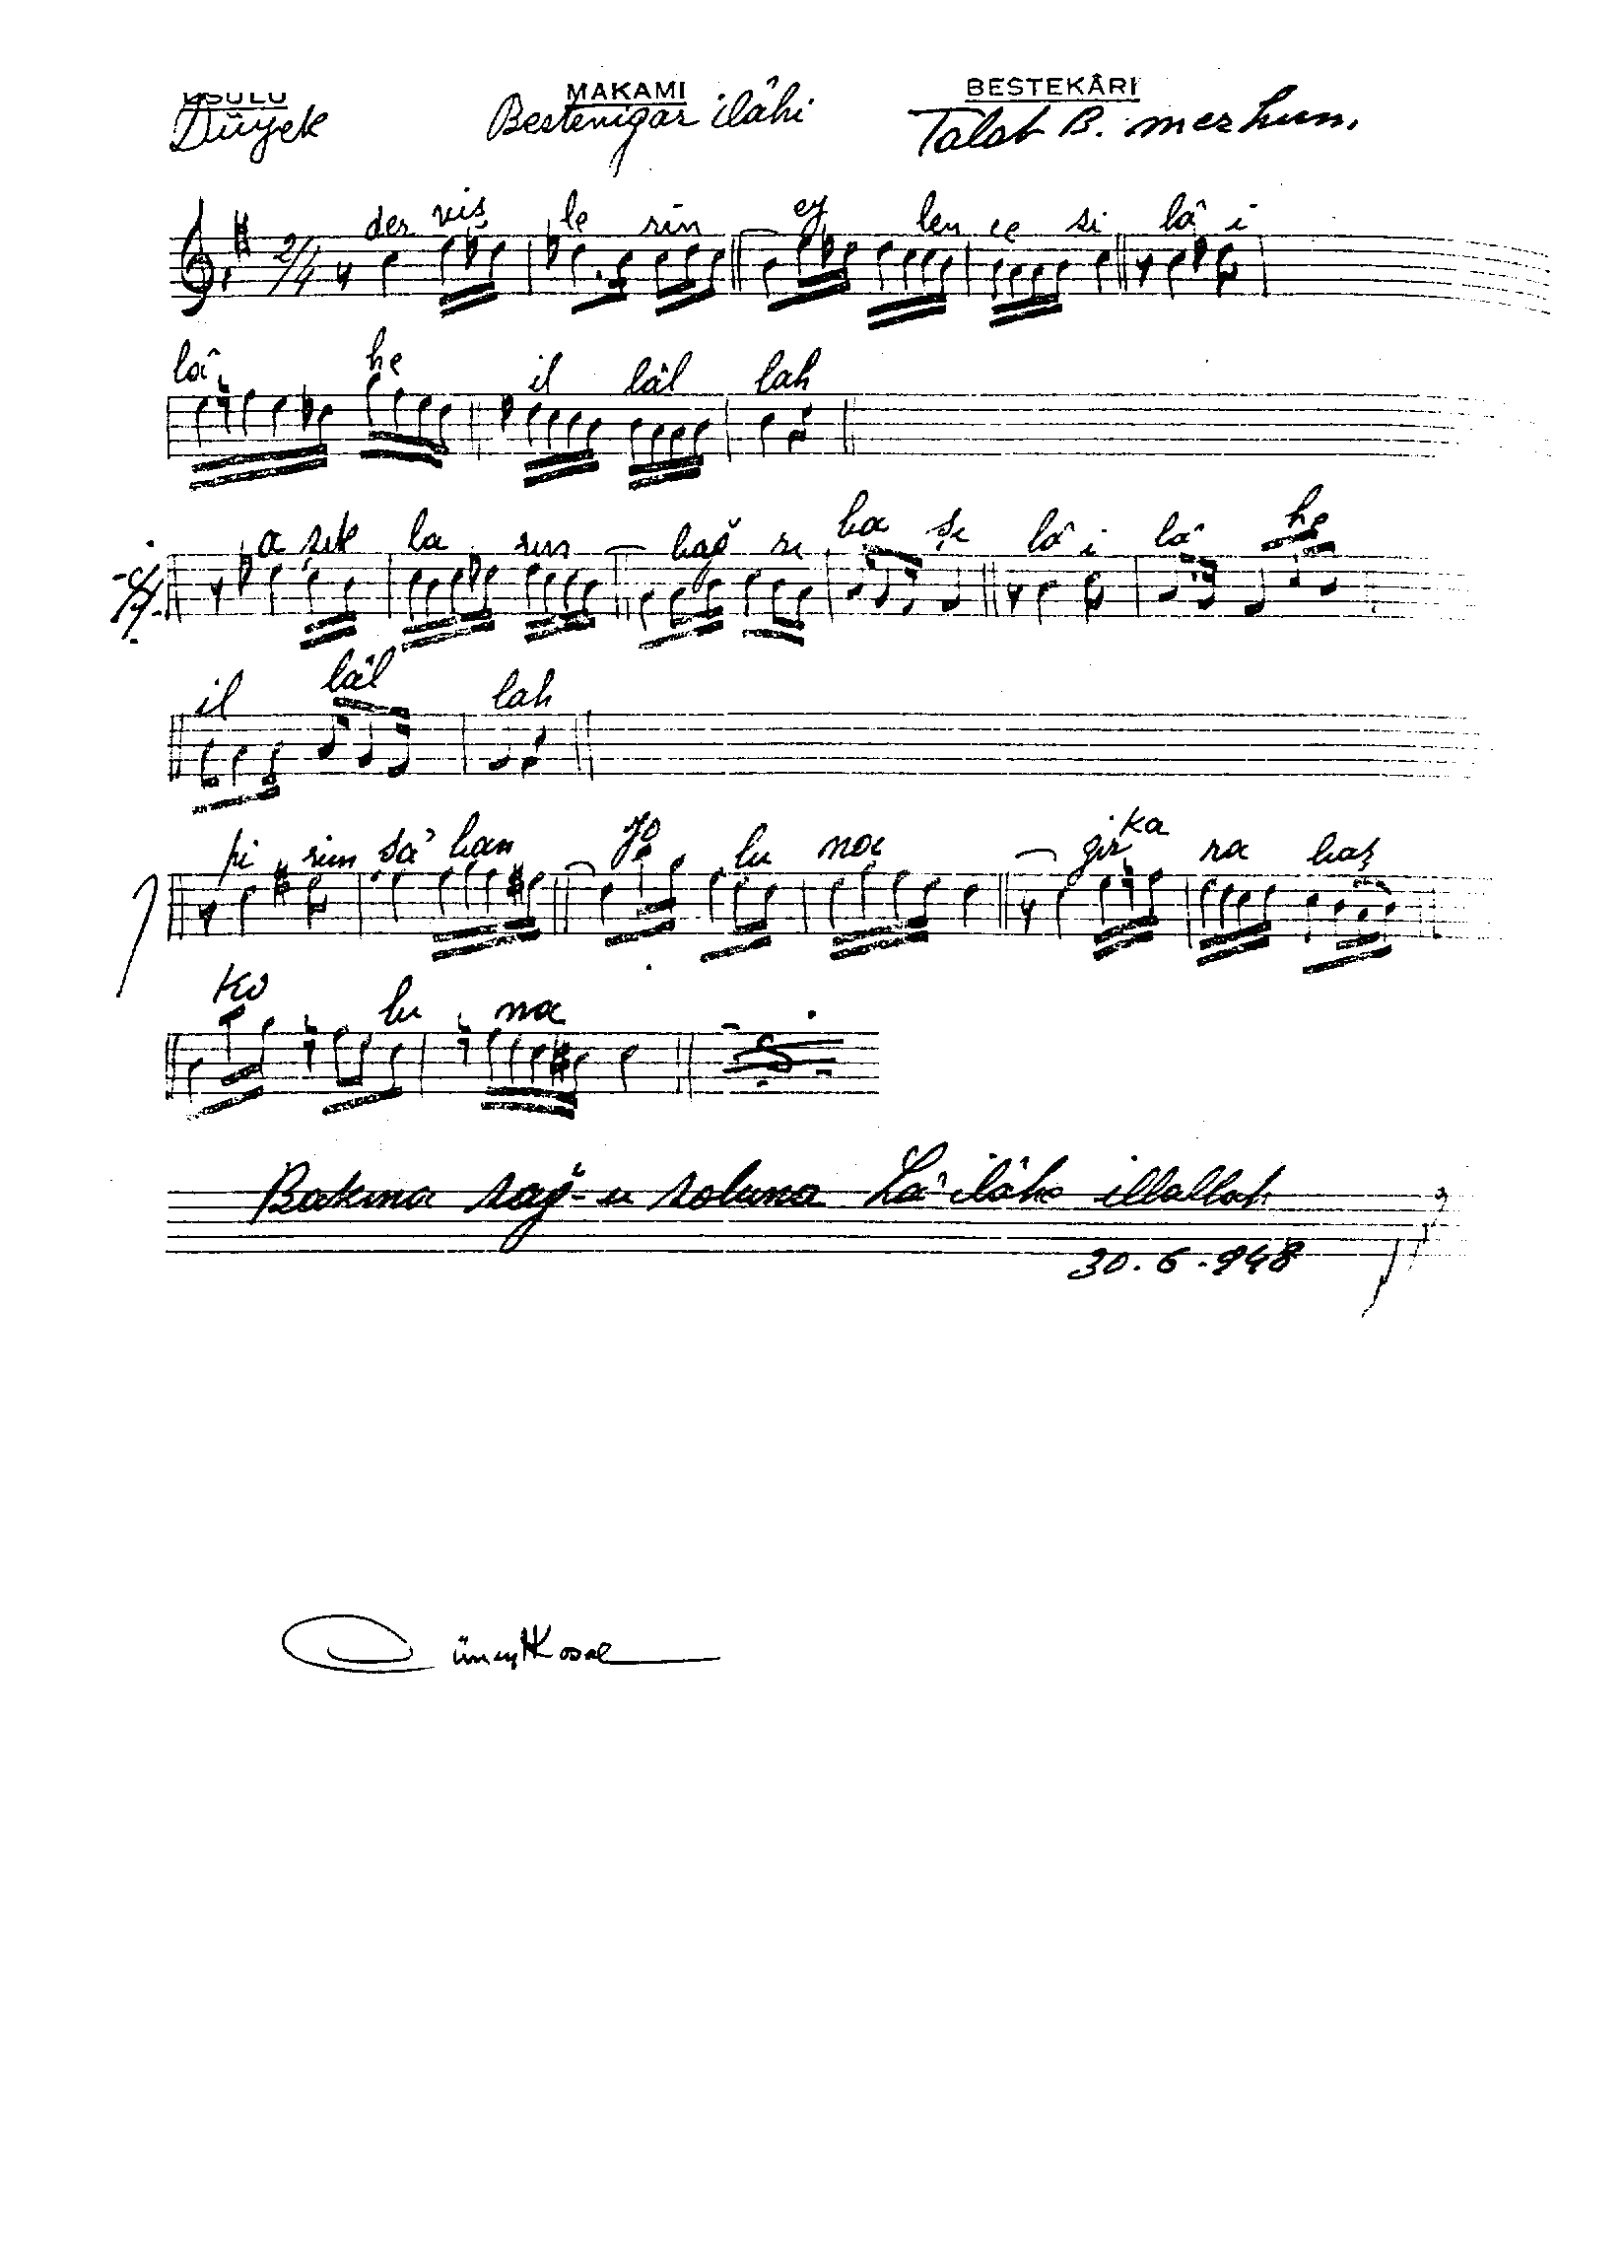 USULÜ MAKAMI BESTEKÂRI
Düyek Bestenigar ilâhi Talat B. merhum.
2/4 der viş le rin ey len ce si lâ i
lâ he il lâl lah
a şık la rın bağ rı ba şı lâ i lâ he
il lâl lah
pi rim şa ban yo lu na gir ka ra baş
ko lu na
Bakma sağ-u soluna Lâ ilâhe illallah
30.6.948
Cüneyt Kosal